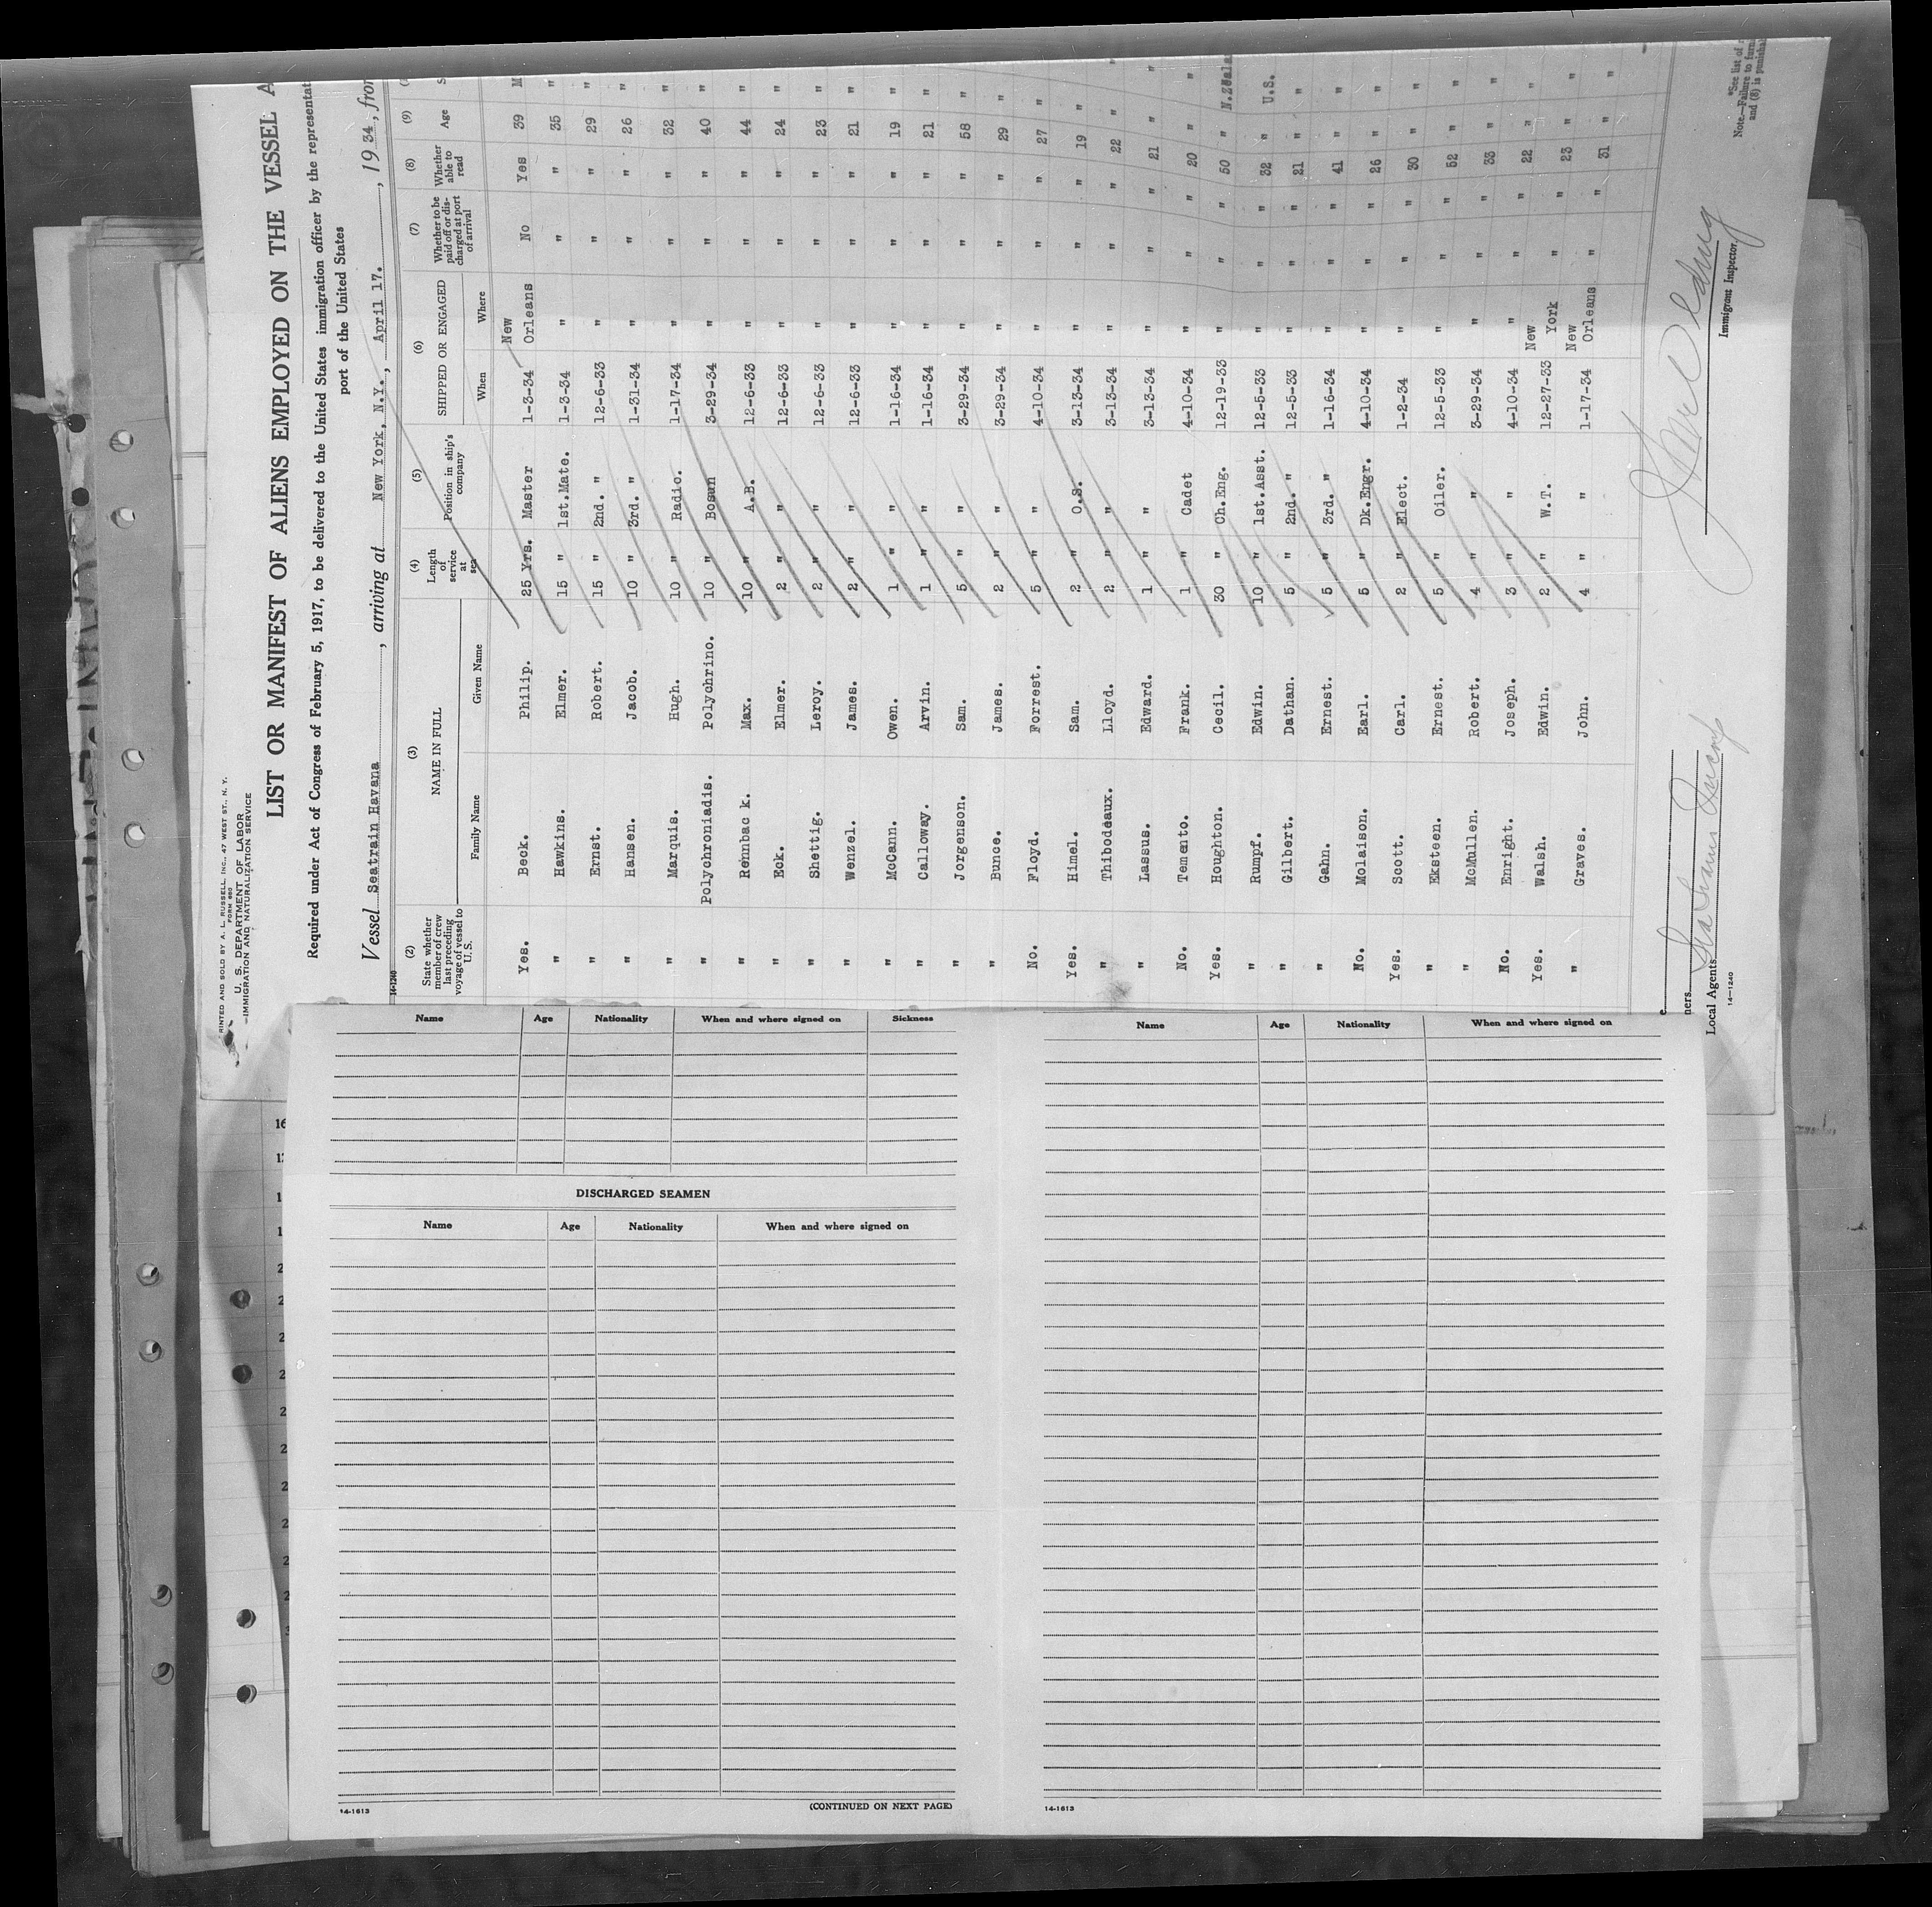 PRINTED AND SOLD BY A. L. RUSSELL, INC., 47 WEST ST., N. Y.
FORM 680
U. S. DEPARTMENT OF LABOR
IMMIGRATION AND NATURALIZATION SERVICE
LIST OR MANIFEST OF ALIENS EMPLOYED ON THE VESSEL A
Required under Act of Congress of February 5, 1917, to be delivered to the United States immigration officer by the representat
port of the United States
Vessel Seatrain Havana, arriving at New York, N.Y., April 17., 1934, from
14-1240
(2) (3) (4) (5) (6) (7) (8) (9)
State whether member of crew last preceding voyage of vessel to U. S. NAME IN FULL Length of service at sea Position in ship's company SHIPPED OR ENGAGED Whether to be paid off or discharged at port of arrival Whether able to read Age S
Family Name Given Name When Where
Yes. Beck. Philip. 25 Yrs. Master 1-3-34 New Orleans No Yes 39 M
" Hawkins. Elmer. 15 " 1st.Mate. 1-3-34 " " " 35 "
" Ernst. Robert. 15 " 2nd. " 12-6-33 " " " 29 "
" Hansen. Jacob. 10 " 3rd. " 1-31-34 " " " 26 "
" Marquis. Hugh. 10 " Radio. 1-17-34 " " " 32 "
" Polychroniadis. Polychrino. 10 " Bosun 3-29-34 " " " 40 "
" Rennbac k. Max. 10 " A.B. 12-6-33 " " " 44 "
" Eck. Elmer. 2 " " 12-6-33 " " " 24 "
" Shettig. Leroy. 2 " " 12-6-33 " " " 23 "
" Wenzel. James. 2 " " 12-6-33 " " " 21 "
" McCann. Owen. 1 " " 1-16-34 " " " 19 "
" Calloway. Arvin. 1 " " 1-16-34 " " " 21 "
" Jorgenson. Sam. 5 " " 3-29-34 " " " 58 "
" Bunce. James. 2 " " 3-29-34 " " " 29 "
No. Floyd. Forrest. 5 " " 4-10-34 " " " 27 "
Yes. Himel. Sam. 2 " O.S. 3-13-34 " " " 19 "
" Thibodeaux. Lloyd. 2 " " 3-13-34 " " " 22 "
" Lassus. Edward. 1 " " 3-13-34 " " " 21 "
No. Temento. Frank. 1 " Cadet 4-10-34 " " " 20 "
Yes. Houghton. Cecil. 30 " Ch.Eng. 12-19-33 " " " 50 " N.Zeala
" Rumpf. Edwin. 10 " 1st.Asst. 12-5-33 " " " 32 " U.S.
" Gilbert. Dathan. 5 " 2nd. " 12-5-33 " " " 21 " "
" Gahn. Ernest. 5 " 3rd. " 1-16-34 " " " 41 " "
No. Molaison. Earl. 5 " Dk.Engr. 4-10-34 " " " 26 " "
Yes. Scott. Carl. 2 " Elect. 1-2-34 " " " 30 " "
" Eksteen. Ernest. 5 " Oiler. 12-5-33 " " " 52 " "
" McMullen. Robert. 4 " " 3-29-34 " " " 33 " "
No. Enright. Joseph. 3 " " 4-10-34 " " " 22 " "
Yes. Walsh. Edwin. 2 " W.T. 12-27-33 New York " " 23 " "
" Graves. John. 4 " " 1-17-34 New Orleans " " 31 " "
Immigrant Inspector.
ners
Local Agents
14-1240
*See list of r
Note.—Failure to furn
and (8) is punishal
Name Age Nationality When and where signed on Sickness
DISCHARGED SEAMEN
Name Age Nationality When and where signed on
14-1613
(CONTINUED ON NEXT PAGE)
Name Age Nationality When and where signed on
14-1613